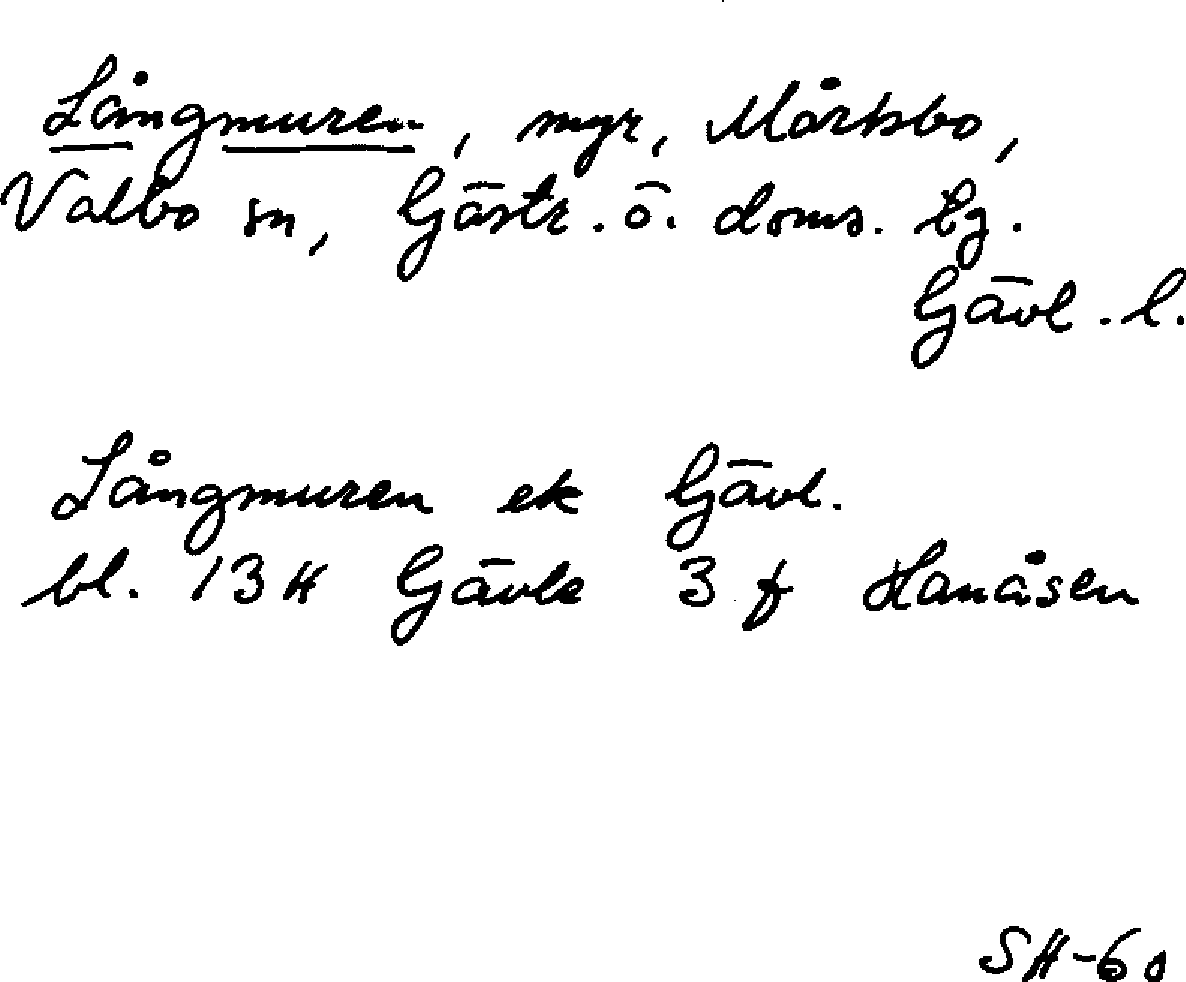 Långmuren, myr, Mårtsbo,
Valbo sn, Gästr. ö. doms. tg.
Gävl. l.
Långmuren ek Gävl.
bl. 13H Gävle 3 f Hanåsen
SH-60